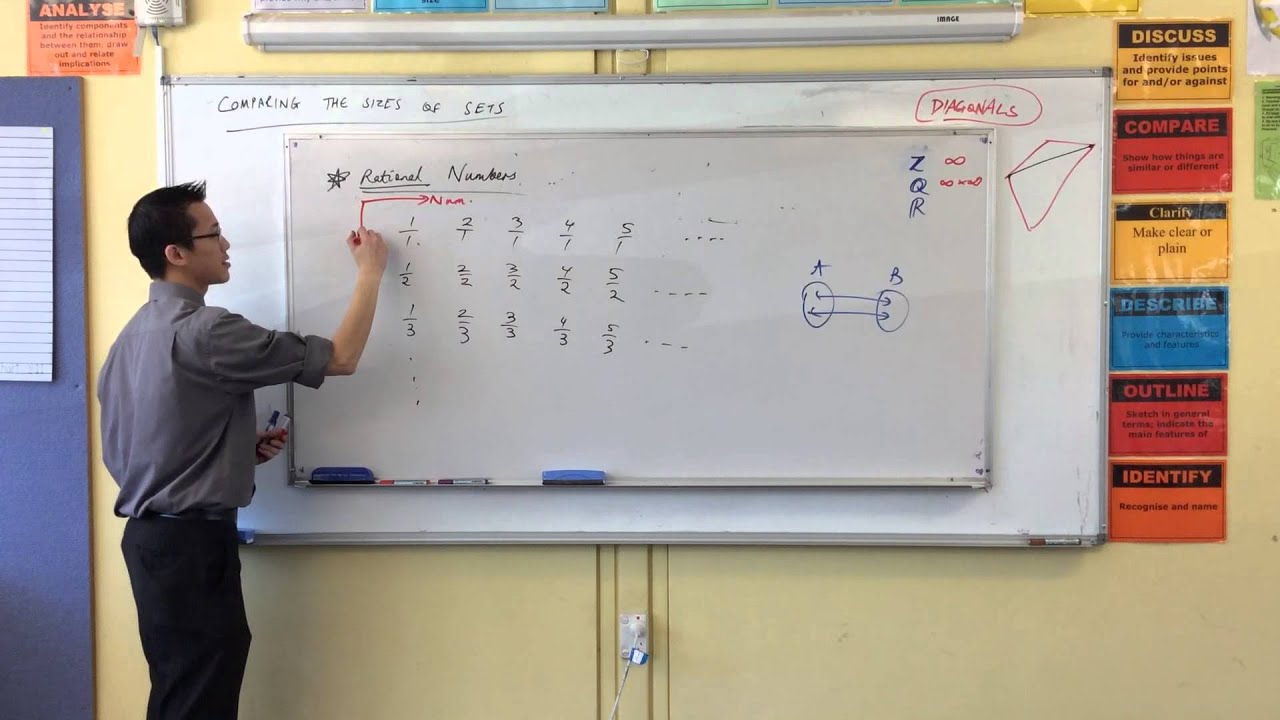 ANALYSE
Identify components
and the relationship
between them, draw
out and relate
implications
size
IMAGE
COMPARING THE SIZES OF SETS
DIAGONALS
Rational Numbers
Num.
1/1 2/1 3/1 4/1 5/1 ....
1/2 2/2 3/2 4/2 5/2 ----
1/3 2/3 3/3 4/3 5/3 .---
Z ∞
Q ∞×∞
R
A B
DISCUSS
Identify issues
and provide points
for and/or against
COMPARE
Show how things are
similar or different
Clarify
Make clear or
plain
DESCRIBE
Provide characteristics
and features
OUTLINE
Sketch in general
terms; indicate the
main features of
IDENTIFY
Recognise and name